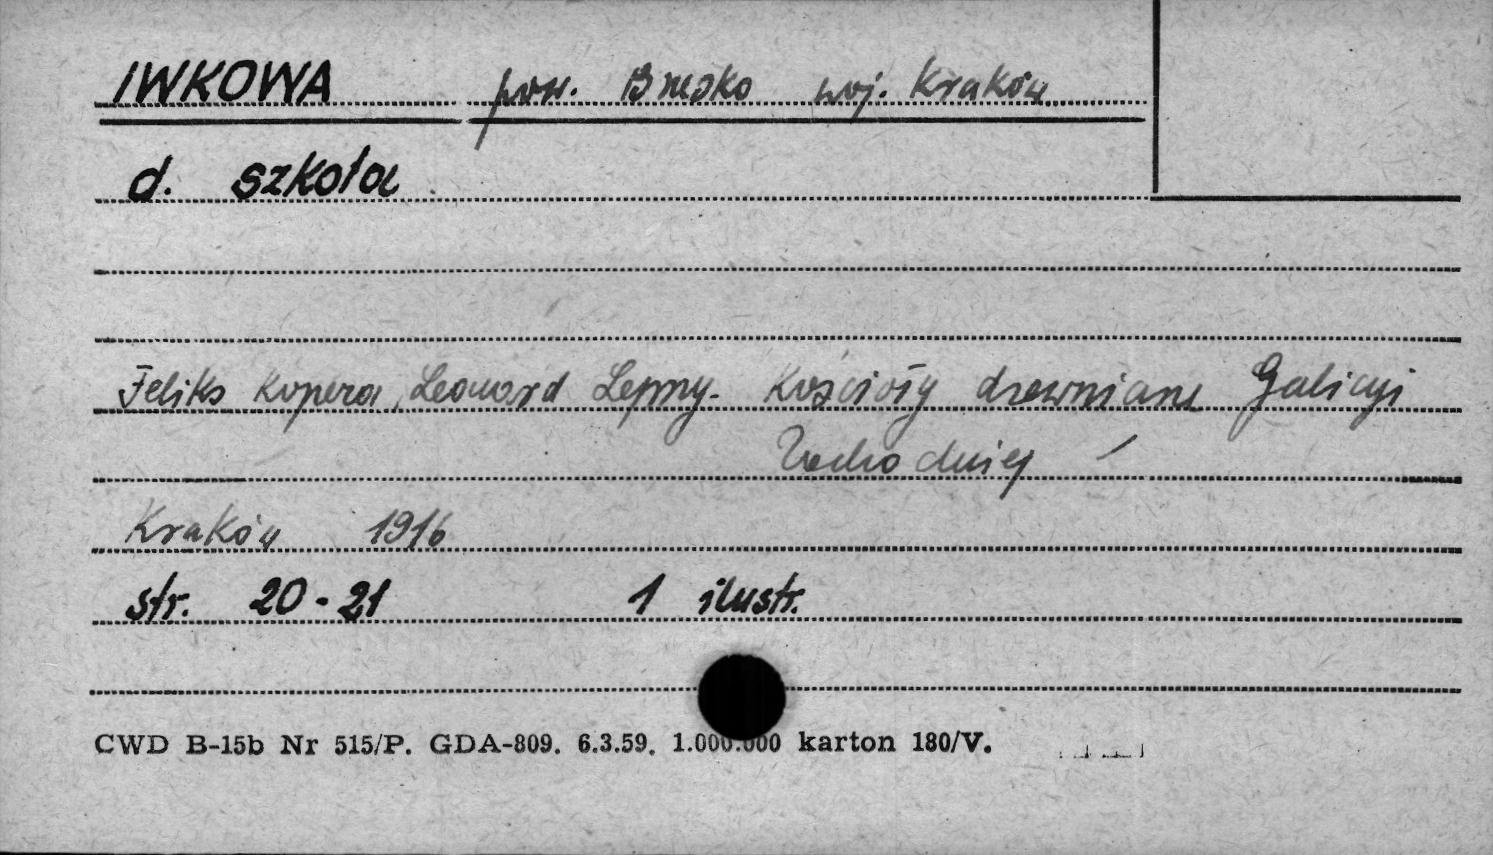 IWKOWA pow. Brzesko woj. Kraków
d. szkoła
Feliks Kopera, Leonard Lepszy - Kościoły drewniane Galicyi
Zachodniej
Kraków 1916
str. 20-21 1 ilustr.
CWD B-15b Nr 515/P. GDA-809. 6.3.59. 1.000.000 karton 180/V.